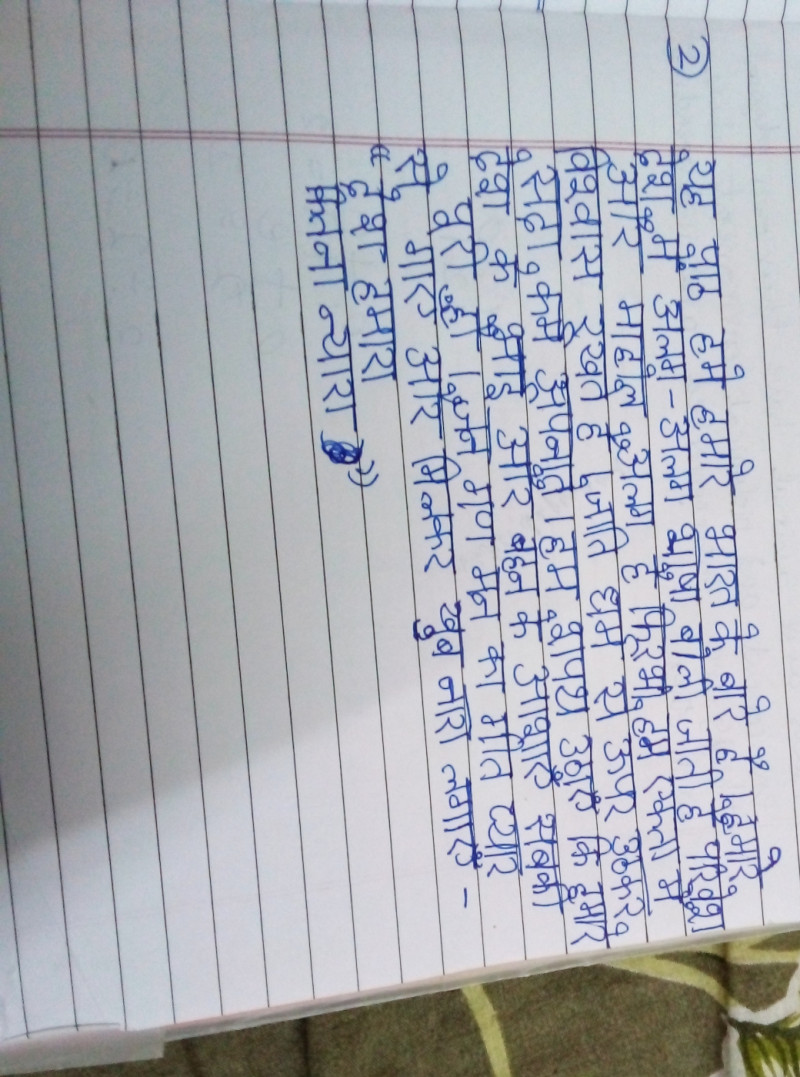 2) यह पाठ हमें हमारे भारत के बारे में है। हमारे
देश में अलग-अलग भाषा बोली जाती है परिवेश
और माहौल अलग है फिर भी हम एकता में
विश्वास रखते है। जाति धर्म से ऊपर उठकर
सदा कर्म अपनाते। हम शपथ उठाएं कि हमारे
देश के भाई और बहन के आधार सबकी
पूरी हो। जन गण मन का गीत प्यार
से गाए और मिलकर खूब नारा लगाएं -
" देश हमारा
कितना न्यारा "